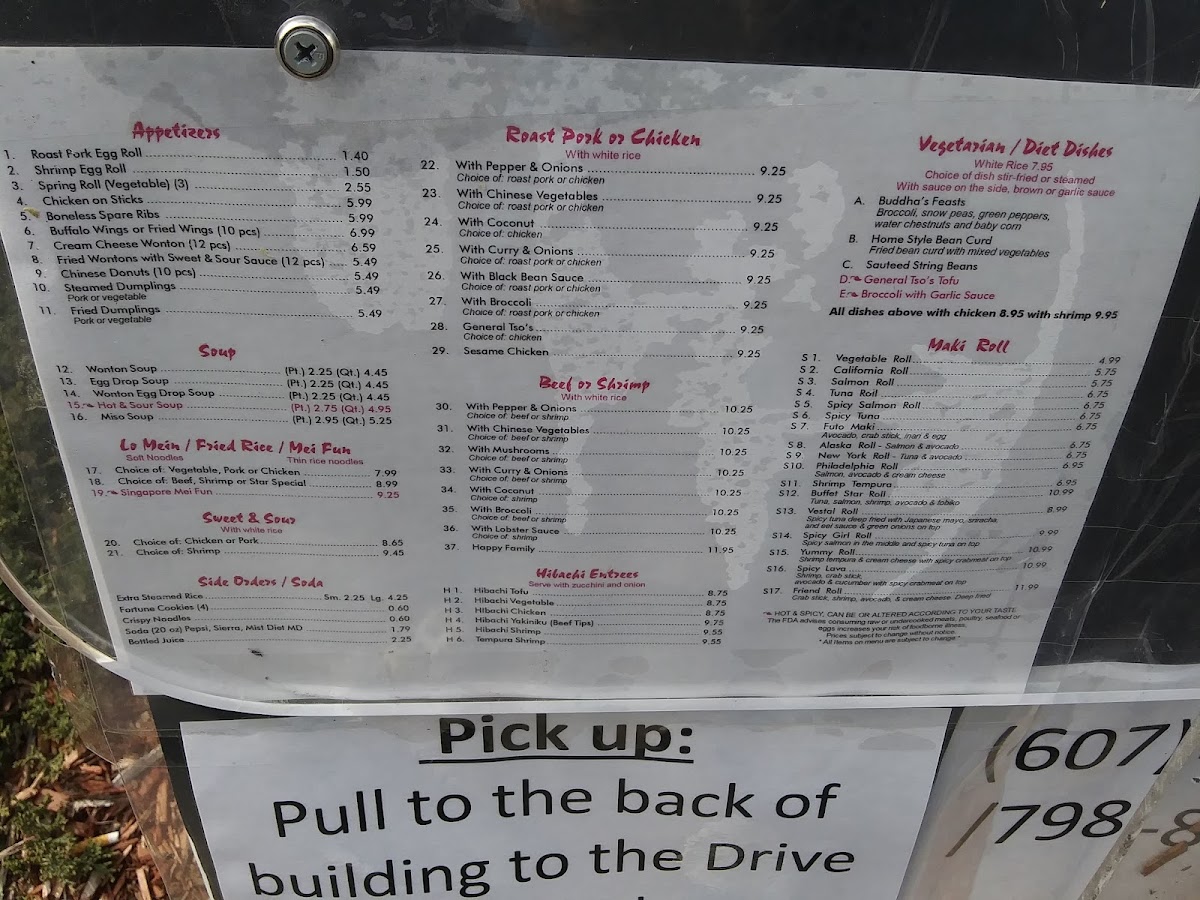 Appetizers
1. Roast Pork Egg Roll 1.40
2. Shrimp Egg Roll 1.50
3. Spring Roll (Vegetable) (3) 2.55
4. Chicken on Sticks 5.99
5. Boneless Spare Ribs 5.99
6. Buffalo Wings or Fried Wings (10 pcs) 6.99
7. Cream Cheese Wonton (12 pcs) 6.59
8. Fried Wontons with Sweet & Sour Sauce (12 pcs) 5.49
9. Chinese Donuts (10 pcs) 5.49
10. Steamed Dumplings 5.49
Pork or vegetable
11. Fried Dumplings 5.49
Pork or vegetable
Soup
12. Wonton Soup (Pt.) 2.25 (Qt.) 4.45
13. Egg Drop Soup (Pt.) 2.25 (Qt.) 4.45
14. Wonton Egg Drop Soup (Pt.) 2.25 (Qt.) 4.45
15. Hot & Sour Soup (Pt.) 2.75 (Qt.) 4.95
16. Miso Soup (Pt.) 2.95 (Qt.) 5.25
Lo Mein / Fried Rice / Mei Fun
Soft Noodles Thin rice noodles
17. Choice of: Vegetable, Pork or Chicken 7.99
18. Choice of: Beef, Shrimp or Star Special 8.99
19. Singapore Mei Fun 9.25
Sweet & Sour
With white rice
20. Choice of: Chicken or Pork 8.65
21. Choice of: Shrimp 9.45
Side Orders / Soda
Extra Steamed Rice Sm. 2.25 Lg. 4.25
Fortune Cookies (4) 0.60
Crispy Noodles 0.60
Soda (20 oz) Pepsi, Sierra, Mist Diet MD 1.79
Bottled Juice 2.25
Roast Pork or Chicken
With white rice
22. With Pepper & Onions 9.25
Choice of: roast pork or chicken
23. With Chinese Vegetables 9.25
Choice of: roast pork or chicken
24. With Coconut 9.25
Choice of: chicken
25. With Curry & Onions 9.25
Choice of: roast pork or chicken
26. With Black Bean Sauce 9.25
Choice of: roast pork or chicken
27. With Broccoli 9.25
Choice of: roast pork or chicken
28. General Tso's 9.25
Choice of: chicken
29. Sesame Chicken 9.25
Beef or Shrimp
With white rice
30. With Pepper & Onions 10.25
Choice of: beef or shrimp
31. With Chinese Vegetables 10.25
Choice of: beef or shrimp
32. With Mushrooms 10.25
Choice of: beef or shrimp
33. With Curry & Onions 10.25
Choice of: beef or shrimp
34. With Coconut 10.25
Choice of: shrimp
35. With Broccoli 10.25
Choice of: beef or shrimp
36. With Lobster Sauce 10.25
Choice of: shrimp
37. Happy Family 11.95
Hibachi Entrees
Serve with zucchini and onion
H 1. Hibachi Tofu 8.75
H 2. Hibachi Vegetable 8.75
H 3. Hibachi Chicken 8.75
H 4. Hibachi Yakiniku (Beef Tips) 9.75
H 5. Hibachi Shrimp 9.55
H 6. Tempura Shrimp 9.55
Vegetarian / Diet Dishes
White Rice 7.95
Choice of dish stir-fried or steamed
With sauce on the side, brown or garlic sauce
A. Buddha's Feasts
Broccoli, snow peas, green peppers,
water chestnuts and baby corn
B. Home Style Bean Curd
Fried bean curd with mixed vegetables
C. Sauteed String Beans
D. General Tso's Tofu
E. Broccoli with Garlic Sauce
All dishes above with chicken 8.95 with shrimp 9.95
Maki Roll
S 1. Vegetable Roll 4.99
S 2. California Roll 5.75
S 3. Salmon Roll 5.75
S 4. Tuna Roll 6.75
S 5. Spicy Salmon Roll 6.75
S 6. Spicy Tuna 6.75
S 7. Futo Maki 6.75
Avocado, crab stick, inari & egg
S 8. Alaska Roll - Salmon & avocado 6.75
S 9. New York Roll - Tuna & avocado 6.75
S10. Philadelphia Roll 6.95
Salmon, avocado & cream cheese
S11. Shrimp Tempura 6.95
S12. Buffet Star Roll 10.99
Tuna, salmon, shrimp, avocado & tobiko
S13. Vestal Roll 8.99
Spicy tuna deep fried with Japanese mayo, sriracha,
and eel sauce & green onions on top
S14. Spicy Girl Roll 9.99
Spicy salmon in the middle and spicy tuna on top
S15. Yummy Roll 10.99
Shrimp tempura & cream cheese with spicy crabmeat on top
S16. Spicy Lava 10.99
Shrimp, crab stick,
avocado & cucumber with spicy crabmeat on top
S17. Friend Roll 11.99
Crab stick, shrimp, avocado, & cream cheese. Deep fried
HOT & SPICY, CAN BE OR ALTERED ACCORDING TO YOUR TASTE
The FDA advises consuming raw or undercooked meats, poultry, seafood or
eggs increases your risk of foodborne illness.
Prices subject to change without notice.
* All items on menu are subject to change *
Pick up:
Pull to the back of
building to the Drive
(607)
/798-8